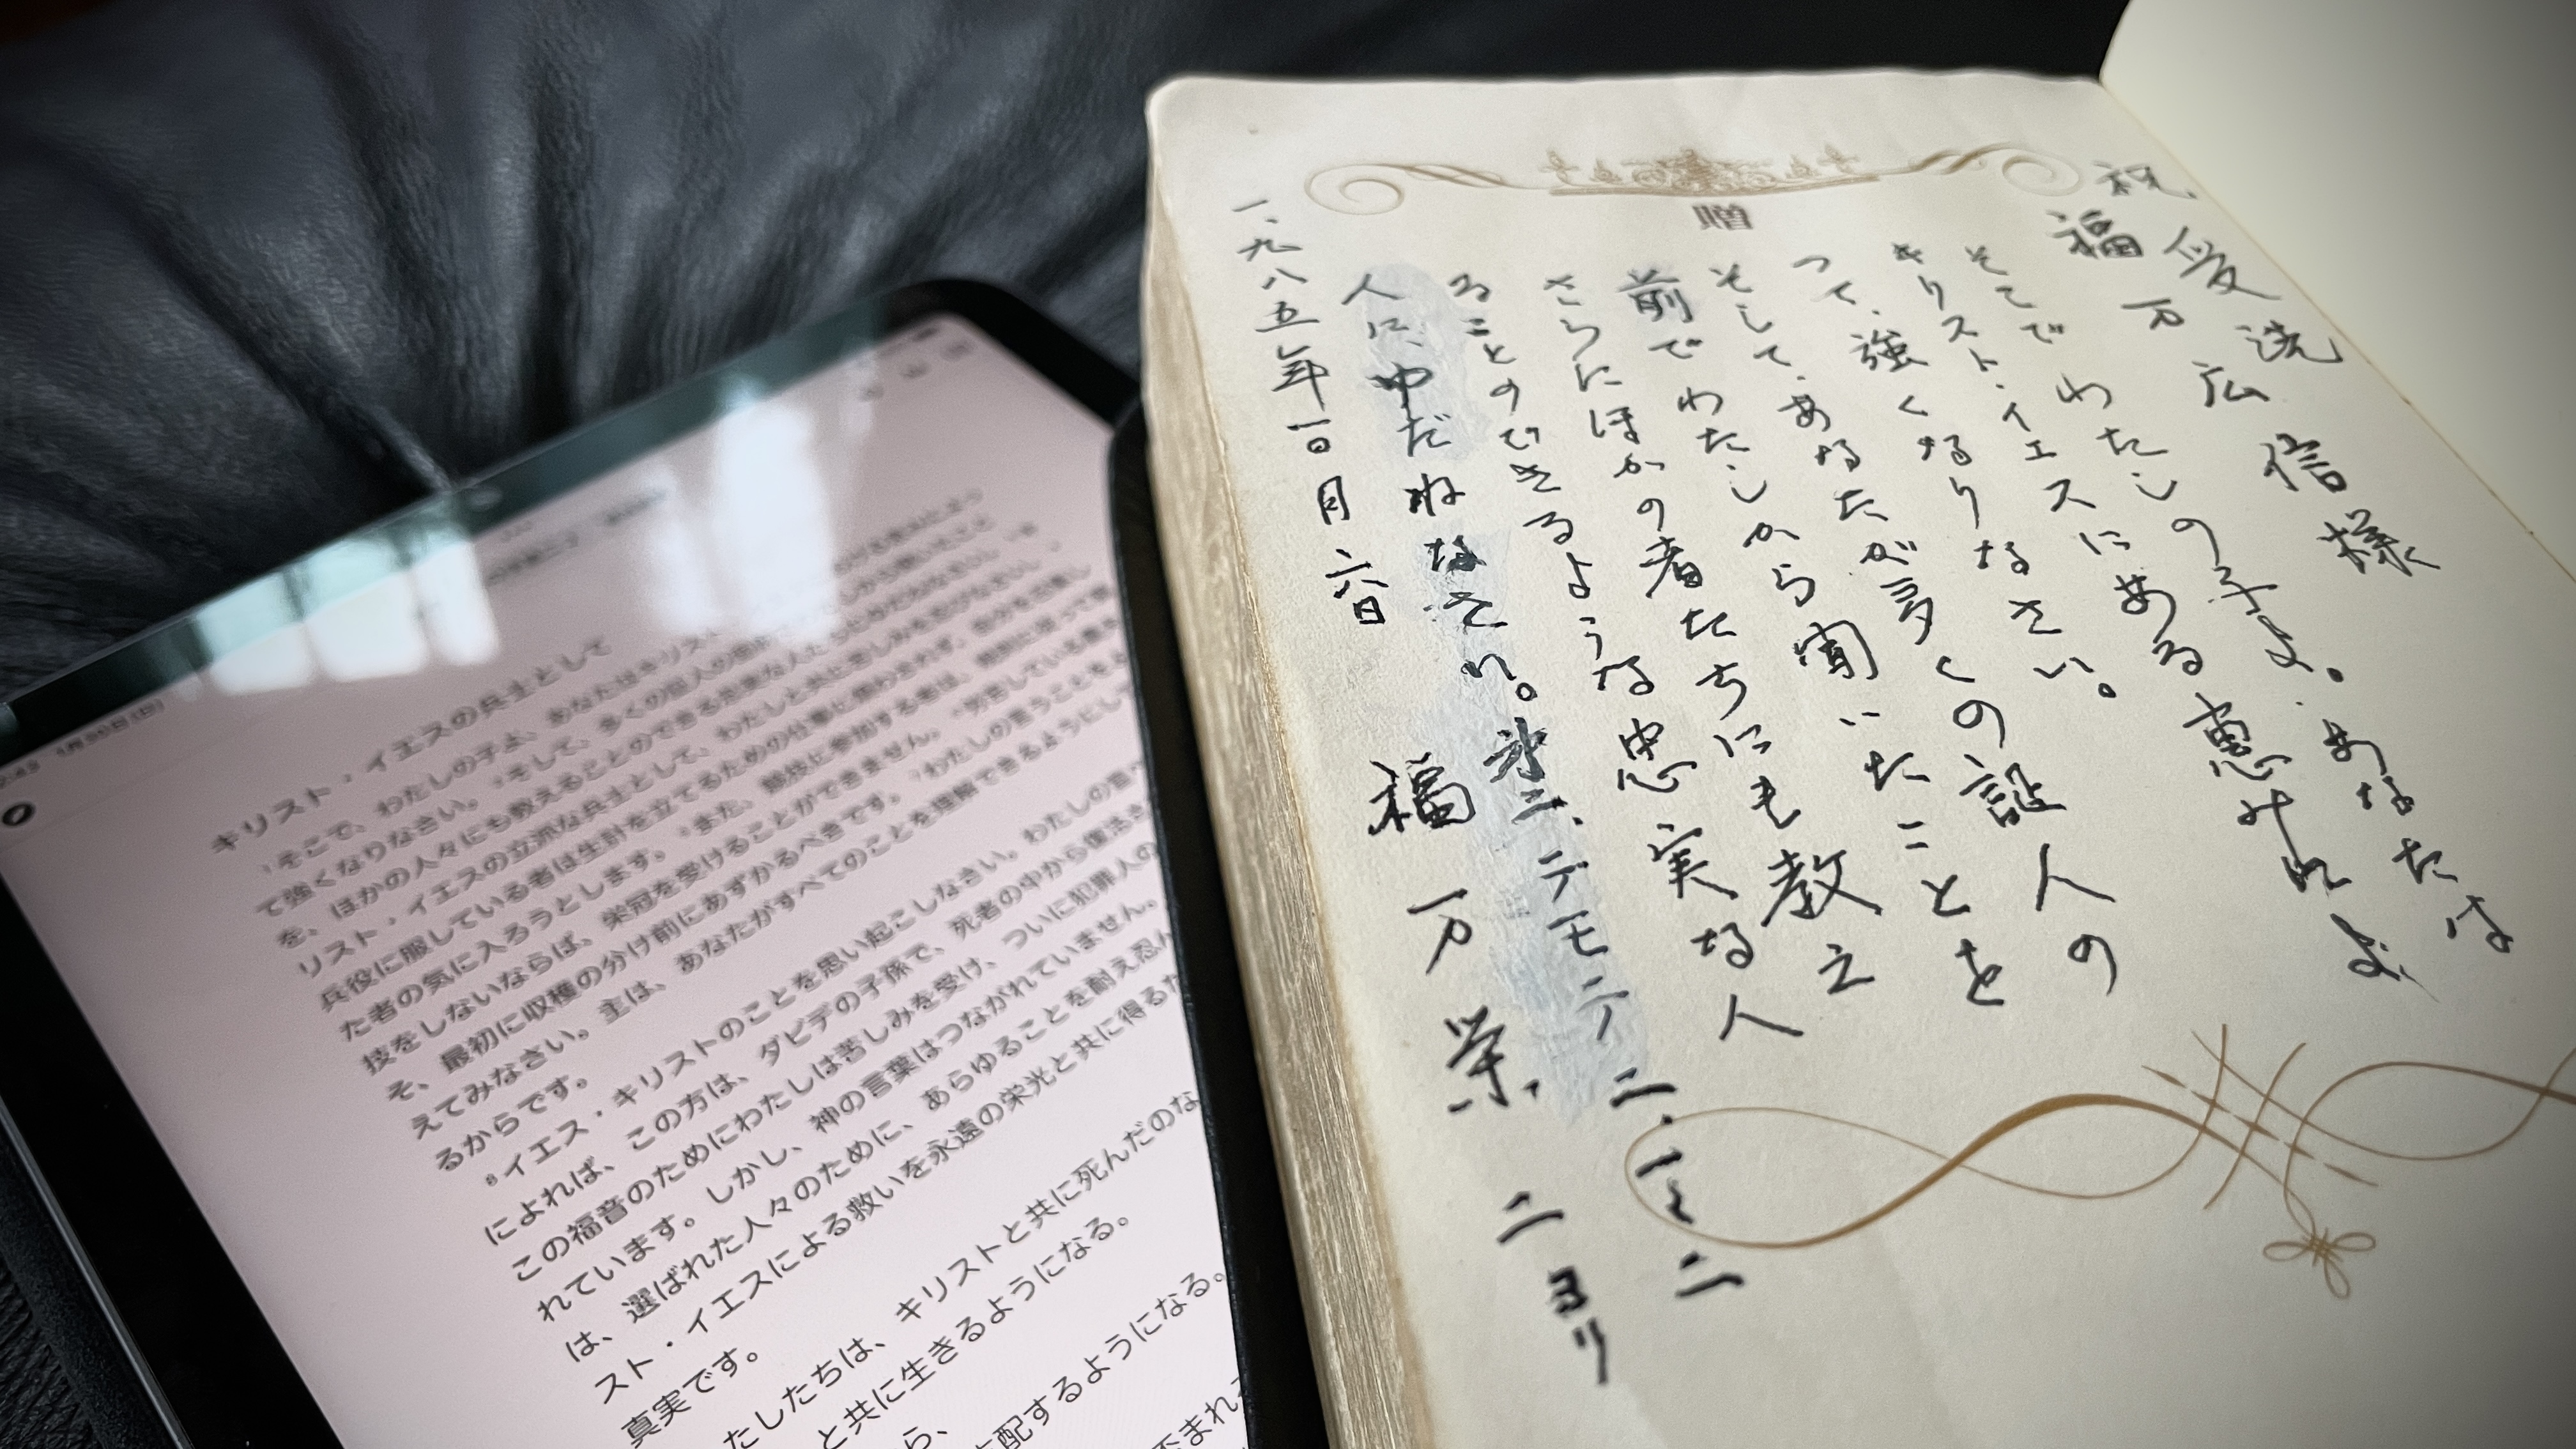 キリスト・イエスの兵士として
1そこで、わたしの子よ、あなたはキリス
て強くなりなさい。2そして、多くの証人の面前
を、ほかの人々にも教えることのできる忠実な人たち
リスト・イエスの立派な兵士として、わたしと共に苦しみを忍びなさい。
兵役に服している者は生計を立てるための仕事に煩わされず、自分を召集し
た者の気に入ろうとします。5また、競技に参加する者は、規則に従って競
技をしないならば、栄冠を受けることができません。6労苦している農夫
そ、最初に収穫の分け前にあずかるべきです。7わたしの言うことをよ
えてみなさい。主は、あなたがすべてのことを理解できるようにして
るからです。
8イエス・キリストのことを思い起こしなさい。わたしの宣べ
によれば、この方は、ダビデの子孫で、死者の中から復活さ
この福音のためにわたしは苦しみを受け、ついに犯罪人の
れています。しかし、神の言葉はつながれていません。
は、選ばれた人々のために、あらゆることを耐え忍ん
スト・イエスによる救いを永遠の栄光と共に得るた
真実です。
たしたちは、キリストと共に死んだのな
と共に生きるようになる。
ら、
支配するようになる。
否まれ
贈
祝、受洗
福万広信様
そこでわたしの子よ。あなたは
キリスト・イエスにある恵みによ
って、強くなりなさい。
そして、あなたが多くの証人の
前でわたしから聞いたことを
さらにほかの者たちにも教え
ることのできるような忠実な人
人に、ゆだねなさい。第二テモテ二・一〜二
福万栄二ヨリ
一九八五年一〇月六日